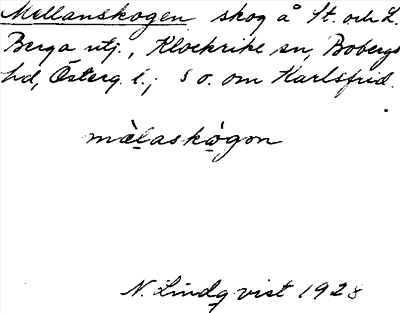 Mellanskogen skog å St. och L.
Berga utj., Klockrike sn, Bobergs
hd, Österg. l.; S o. om Karlsfrid.
mὰlaskògon
N. Lindqvist 1928